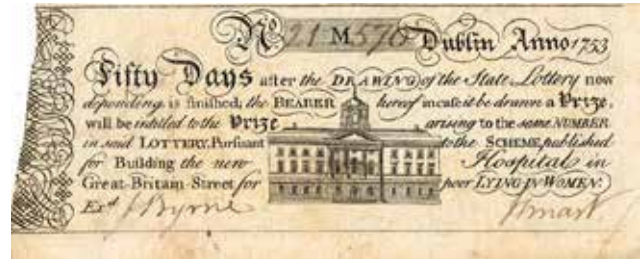 No. 21 M 570 Dublin Anno 1753
Fifty Days after the DRAWING of the State Lottery now
depending is finished, the BEARER hereof in case it be drawn a Prize,
will be intitled to the Prize arising to the same NUMBER
in said LOTTERY. Pursuant to the SCHEME, published
for Building the new Hospital in
Great-Britain-Street for poor LYING-IN WOMEN.
Exd. J Byrne